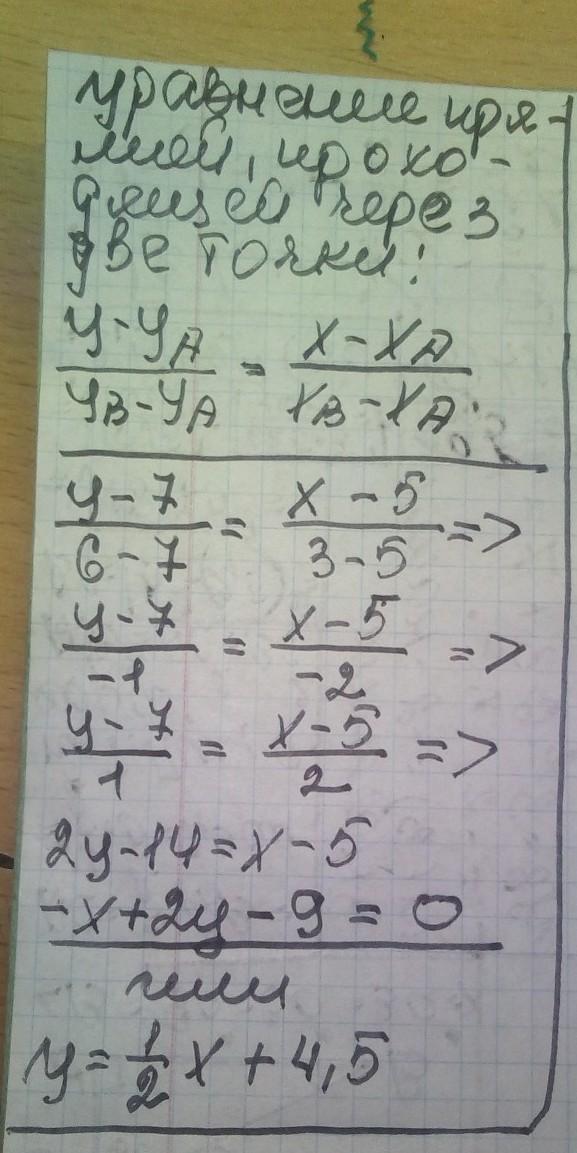 уравнение пря-
мой, прохо-
дящей через
две точки:
y-yA/yB-yA = x-xA/xB-xA.
y-7/6-7 = x-5/3-5 =>
y-7/-1 = x-5/-2 =>
y-7/1 = x-5/2 =>
2y-14=x-5
-x+2y-9=0
или
y=1/2x+4,5